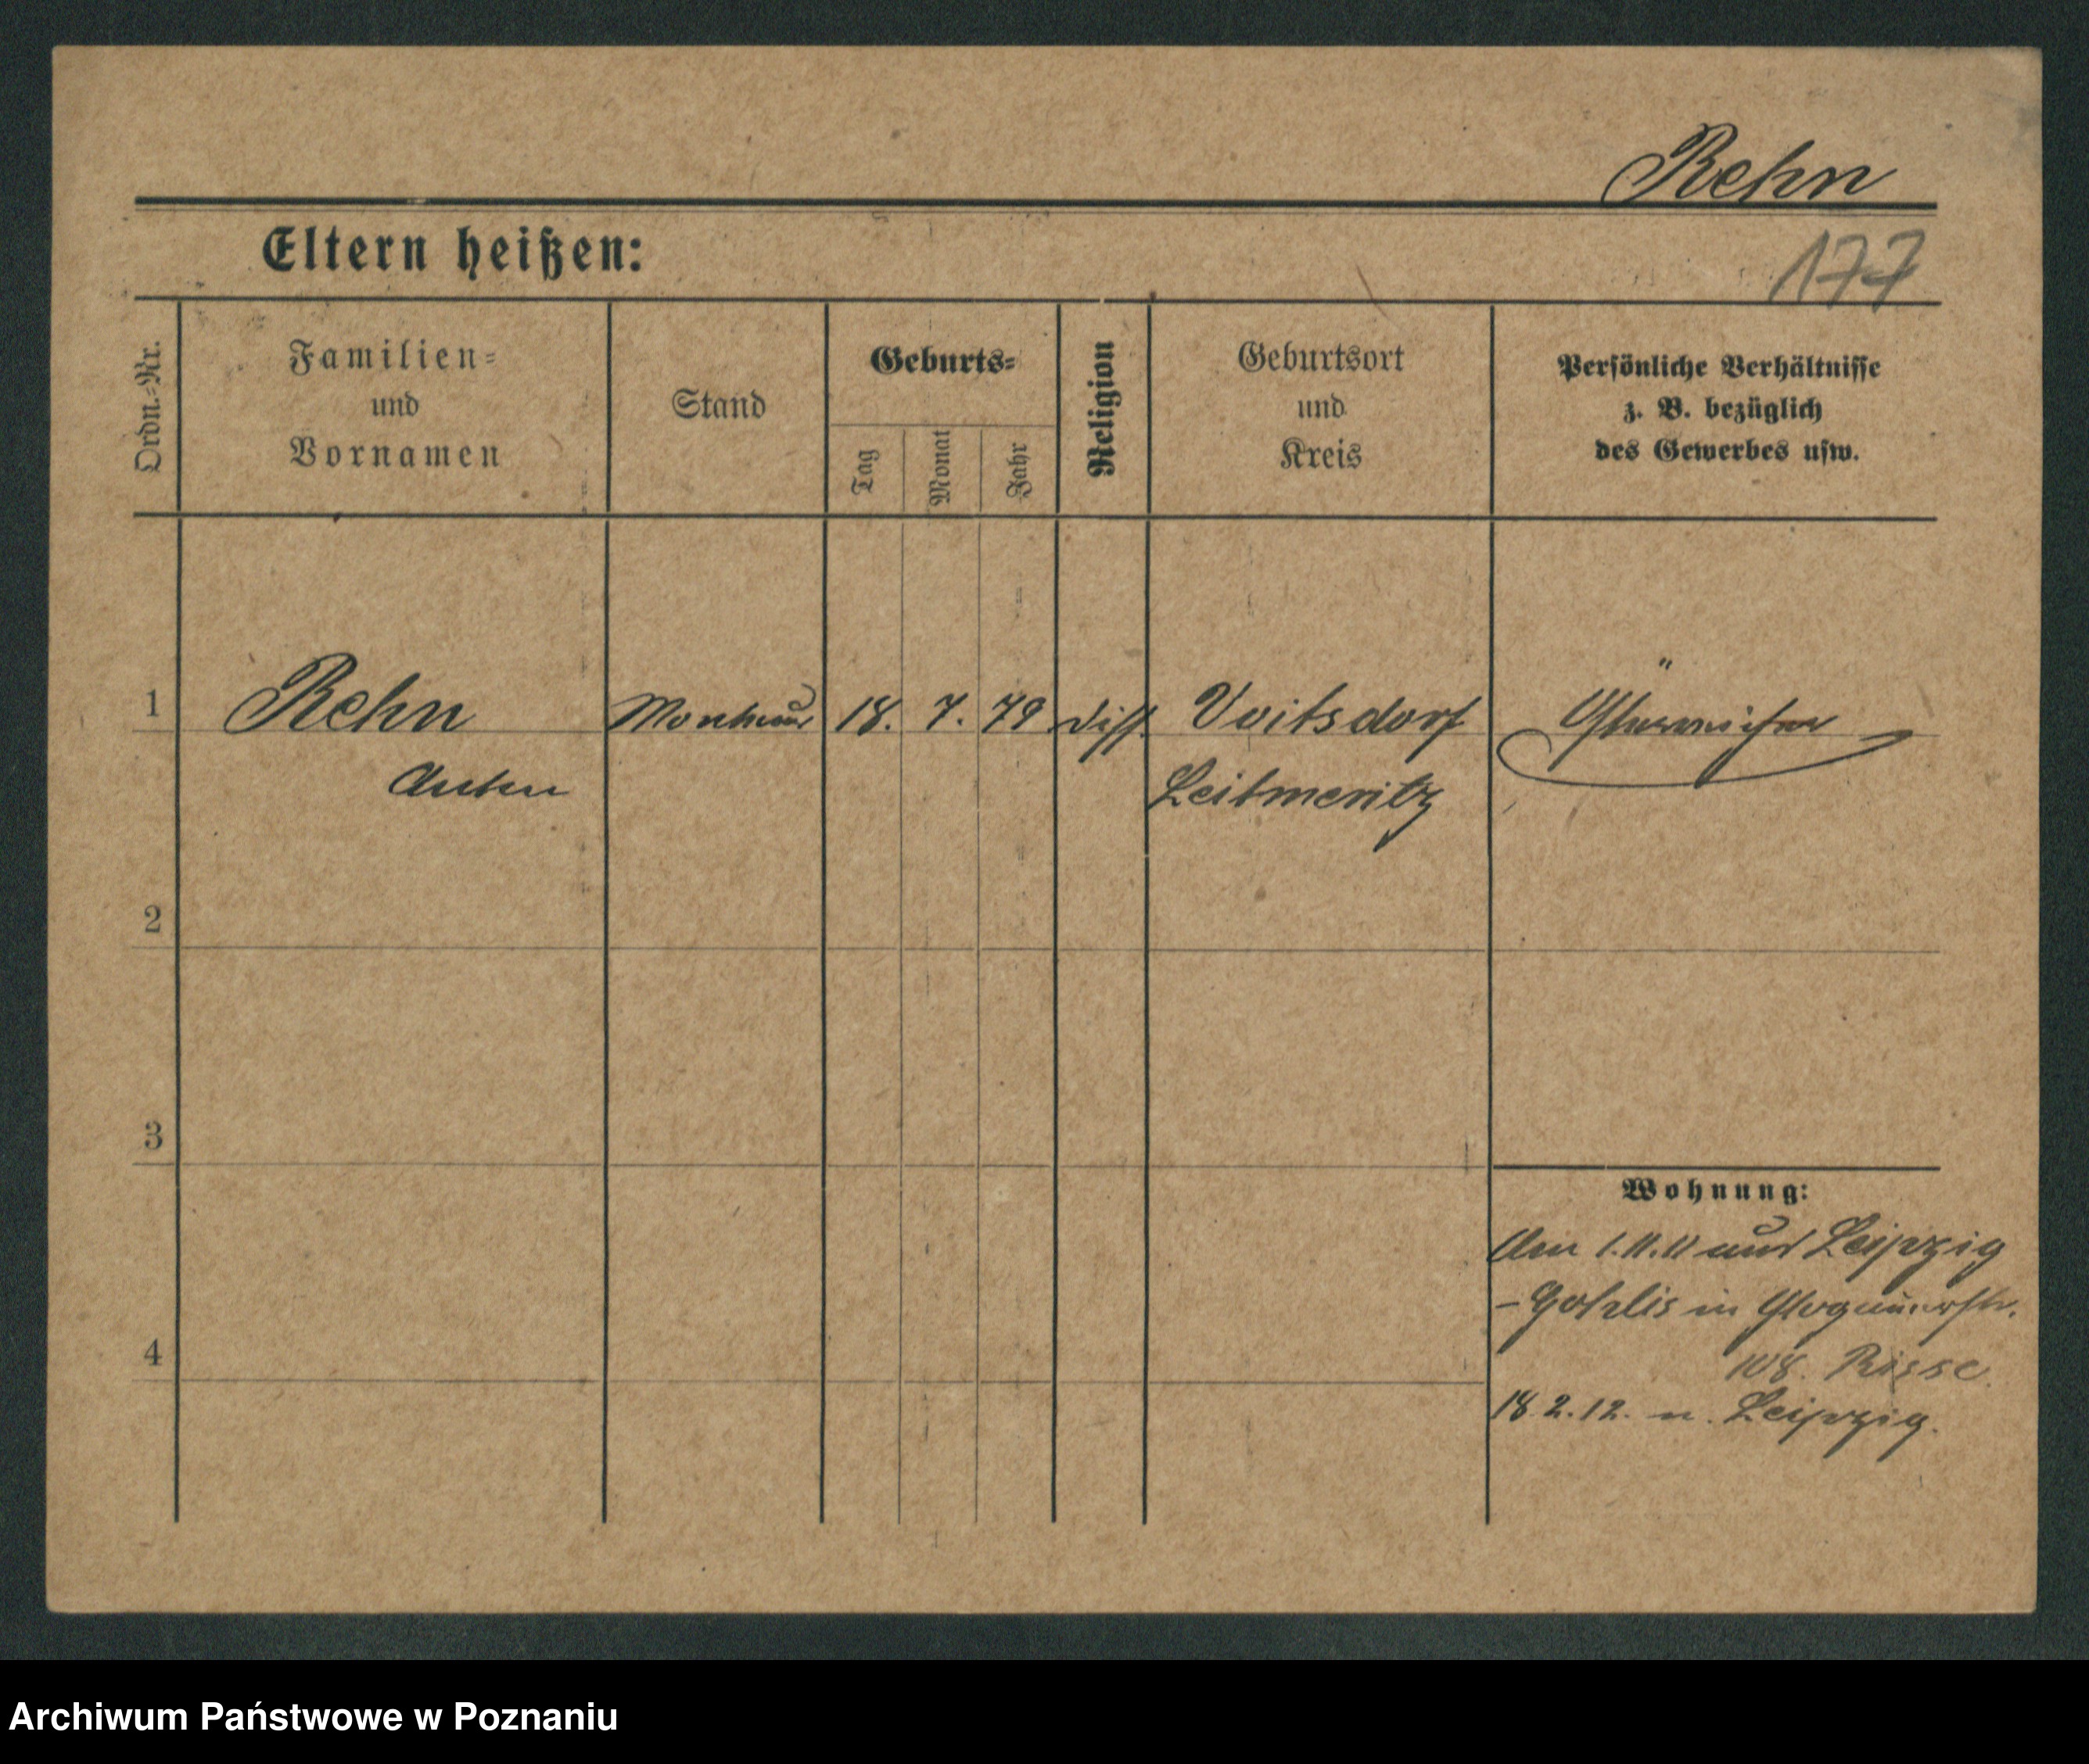 Rehn
Eltern heißen:
177
Ordn.-Nr.
Familien-
und
Vornamen
Stand
Geburts-
Tag
Monat
Jahr
Religion
Geburtsort
und
Kreis
Persönliche Verhältnisse
z. B. bezüglich
des Gewerbes usw.
1 Rehn Monteur 18. 7. 79 diss. Voitsdorf Österreicher
Anton Leitmeritz
2
3
4
Wohnung:
Am 1.11.11 aus Leipzig
- Gohlis in Glogauerstr.
108. Risse.
18.2.12. n. Leipzig.
Archiwum Państwowe w Poznaniu